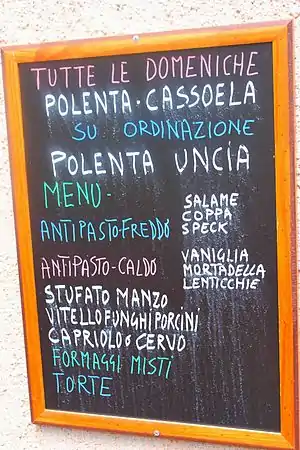 TUTTE LE DOMENICHE
POLENTA · CASSOELA
SU ORDINAZIONE
POLENTA UNCIA
MENU -
ANTIPASTO-FREDDO
SALAME
COPPA
SPECK
ANTIPASTO-CALDO
VANIGLIA
MORTADELLA
LENTICCHIE
STUFATO MANZO
VITELLO FUNGHI PORCINI
CAPRIOLO o CERVO
FORMAGGI MISTI
TORTE